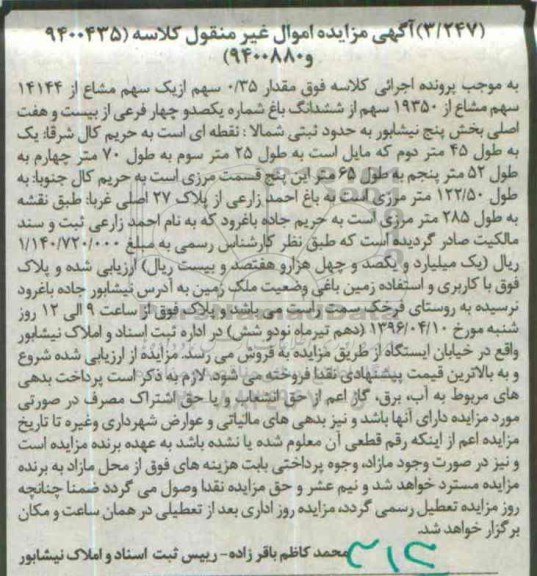 (۳/۲۴۷)آگهی مزایده اموال غیر منقول کلاسه (۹۴۰۰۴۳۵
و۹۴۰۰۸۸۰)
به موجب پرونده اجرائی کلاسه فوق مقدار ۰/۳۵ سهم ازیک سهم مشاع از ۱۴۱۴۴
سهم مشاع از ۱۹۳۵۰ سهم از ششدانگ باغ شماره یکصدو چهار فرعی از بیست و هفت
اصلی بخش پنج نیشابور به حدود ثبتی شمالا : نقطه ای است به حریم کال شرقا: یک
به طول ۴۵ متر دوم که مایل است به طول ۲۵ متر سوم به طول ۷۰ متر چهارم به
طول ۵۲ متر پنجم به طول ۶۵ متر این پنج قسمت مرزی است به حریم کال جنوبا: به
طول ۱۲۲/۵۰ متر مرزی است به باغ احمد زارعی از پلاک ۲۷ اصلی غربا: طبق نقشه
به طول ۲۸۵ متر مرزی است به حریم جاده باغرود که به نام احمد زارعی ثبت و سند
مالکیت صادر گردیده است که طبق نظر کارشناس رسمی به مبلغ ۱/۱۴۰/۷۲۰/۰۰۰
ریال (یک میلیارد و یکصد و چهل هزارو هفتصد و بیست ریال) ارزیابی شده و پلاک
فوق با کاربری و استفاده زمین باغی وضعیت ملک زمین به آدرس نیشابور جاده باغرود
نرسیده به روستای فرخک سمت راست می باشد و پلاک فوق از ساعت ۹ الی ۱۲ روز
شنبه مورخ ۱۳۹۶/۰۴/۱۰ (دهم تیرماه نودو شش) در اداره ثبت اسناد و املاک نیشابور
واقع در خیابان ایستگاه از طریق مزایده به فروش می رسد. مزایده از ارزیابی شده شروع
و به بالاترین قیمت پیشنهادی نقدا فروخته می شود. لازم به ذکر است پرداخت بدهی
های مربوط به آب، برق، گاز اعم از حق انشعاب و یا حق اشتراک مصرف در صورتی
مورد مزایده دارای آنها باشد و نیز بدهی های مالیاتی و عوارض شهرداری وغیره تا تاریخ
مزایده اعم از اینکه رقم قطعی آن معلوم شده یا نشده باشد به عهده برنده مزایده است
و نیز در صورت وجود مازاد، وجوه پرداختی بابت هزینه های فوق از محل مازاد به برنده
مزایده مسترد خواهد شد و نیم عشر و حق مزایده نقدا وصول می گردد ضمنا چنانچه
روز مزایده تعطیل رسمی گردد، مزایده روز اداری بعد از تعطیلی در همان ساعت و مکان
برگزار خواهد شد.
محمد کاظم باقر زاده- رییس ثبت اسناد و املاک نیشابور